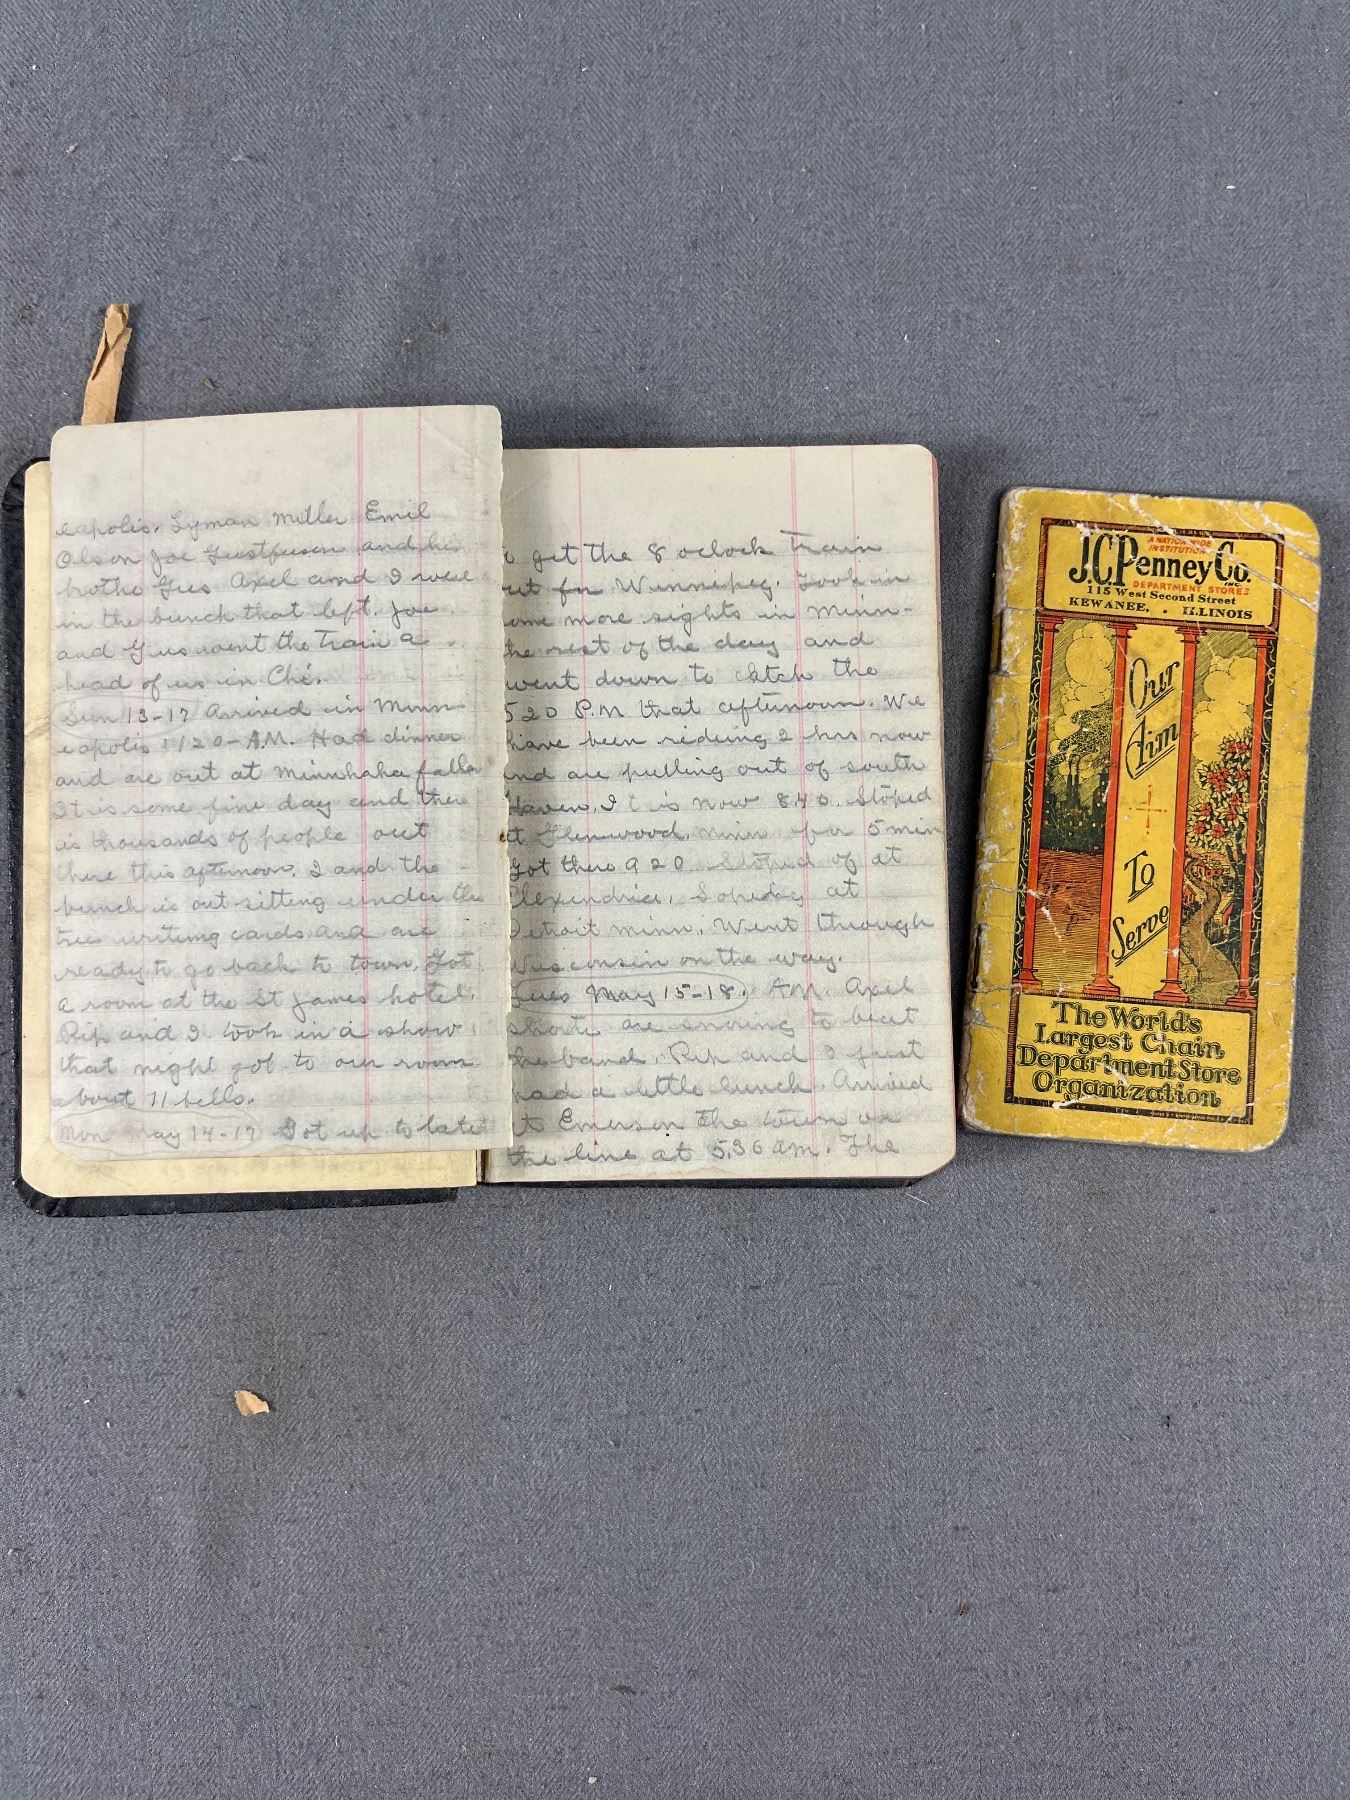 eapolis. Lyman Miller Emil
Olson Joe Gustfuson and his
brotho Gus Axel and I were
in the bunch that left. Joe
and Gus went the Train a
head of us in Chi.
Sun 13-17 Arrived in Minn
eapolis 1120-A.M. Had dinner
and are out at Minnhaha falls
It is some fine day and there
is thousands of people out
there this afternoon. I and the
bunch is out sitting under the
trees writing cards and are
ready to go back to town. Got
a room at the St James hotel.
Rip and I took in a show
that night got to our room
about 11 bells.
Mon May 14-17 Got up to late
to get the 8 oclock Train
out for Winnepeg. Took in
some more sights in Minn-
the rest of the day and
went down to Catch the
520 P.M that afternoon. We
have been rideing 2 hrs now
and are pulling out of south
Haven. It is now 840. Stoped
at Glenwood, Minn for 5 min
Got there 920. Stoped of at
Elexandria. at
Detroit Minn. Went through
Wisconsin on the way.
Tues May 15-18. AM. Axel
Shorts are snoring to beat
the band. Rip and I just
had a little lunch. Arrived
at Emerson the town on
the line at 5.36 am. The
J.C.Penney Co. INC.
A NATION-WIDE
INSTITUTION
DEPARTMENT STORES
115 West Second Street
KEWANEE, - ILLINOIS
Our
Aim
To
Serve
The World's
Largest Chain
Department Store
Organization